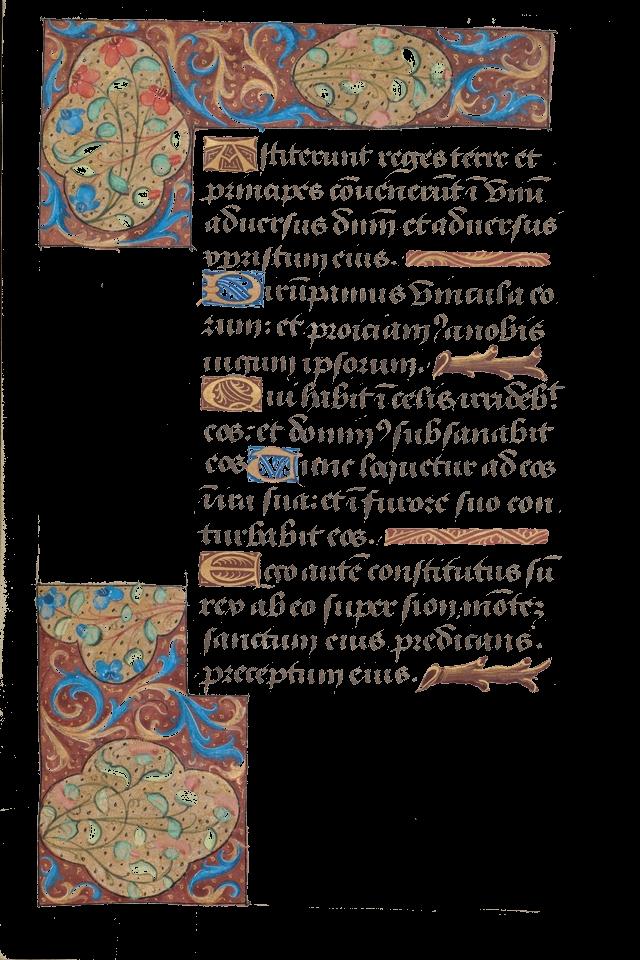 Astiterunt reges terre et
principes cōuenerūt ī vnū
aduersus dnm̄ et aduersus
xpristum eius.
Dirūpamus vincula eo
rum: et proiciamꝰ a nobis
iugum ipsorum.
Qui habit ī celis irridebt
eos: et dominꝰ subsanabit
eos Tunc loquetur ad eos
ī ira sua: et ī furore suo con
turbabit eos.
Ego autē constitutus sū
rex ab eo super sion mōtez
sanctum eius predicans.
preceptum eius.